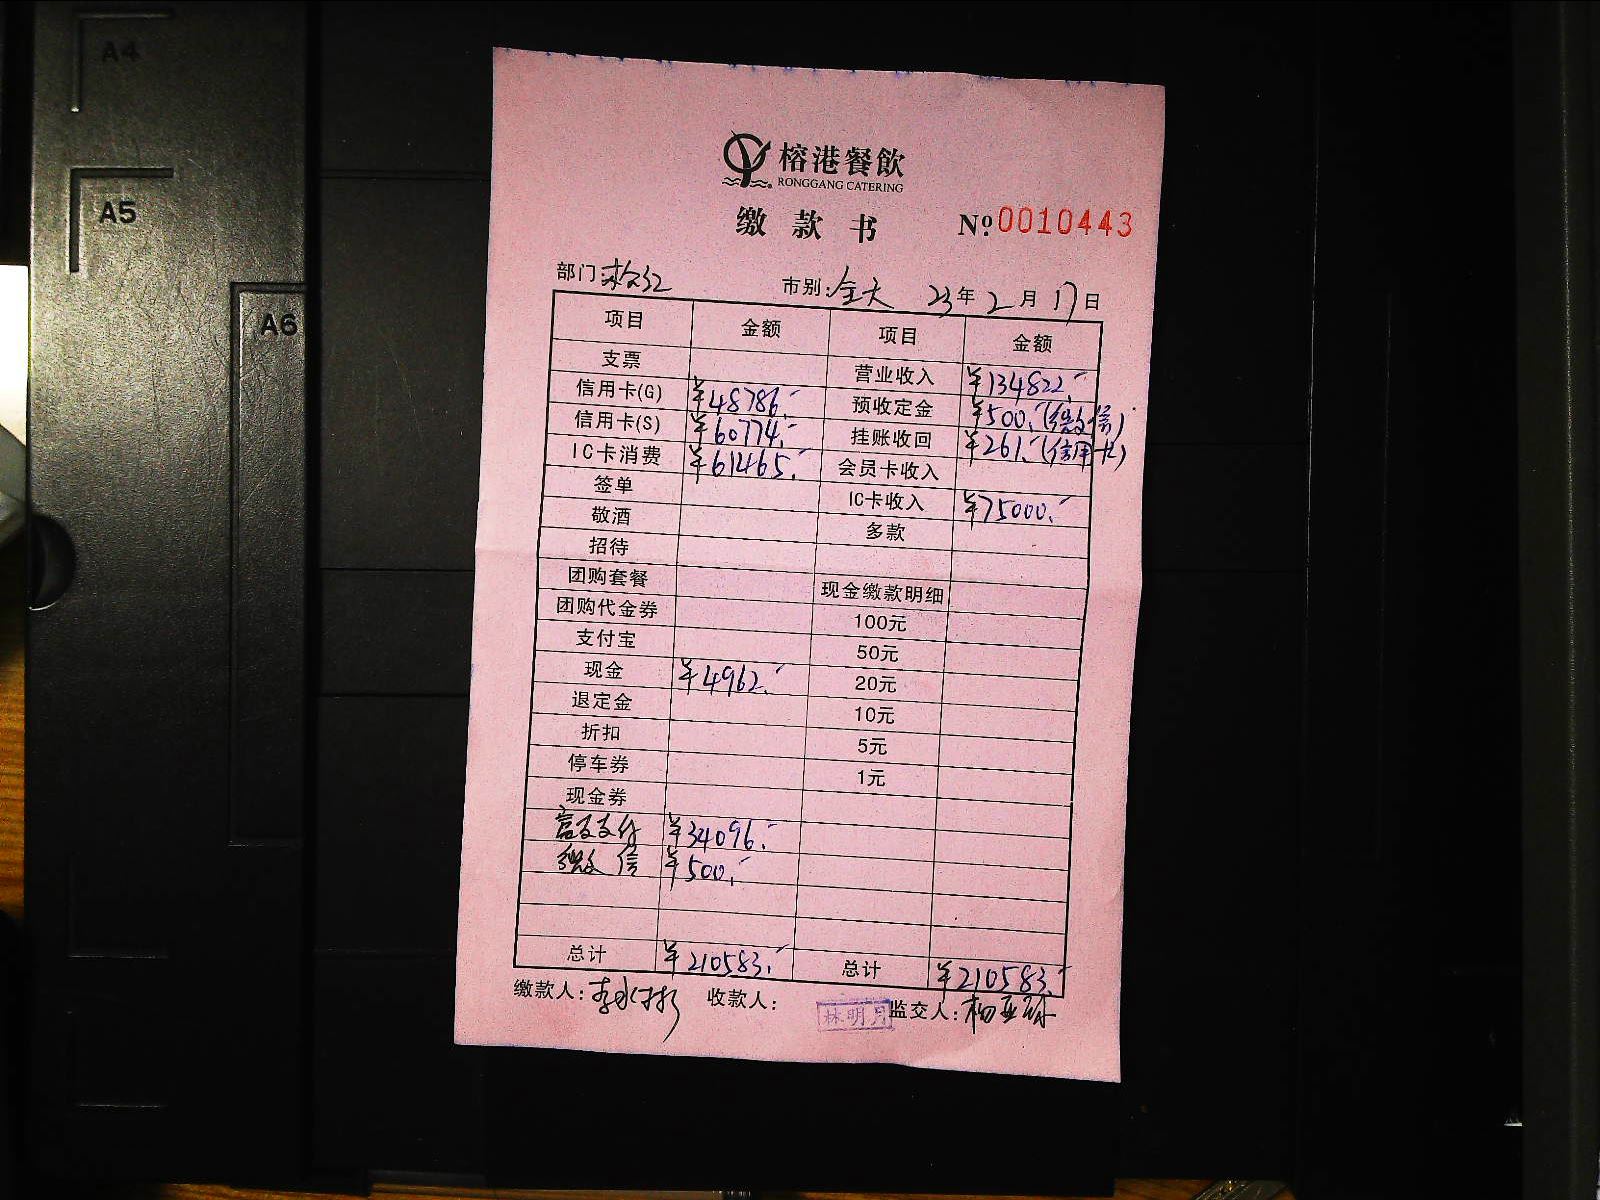 A4
A5
A6
榕港餐飲
RONGGANG CATERING
缴款书 №0010443
部门: 市别:全天 23年2月17日
项目 金额 项目 金额
支票 营业收入 ¥134822.-
信用卡(G) ¥48786.- 预收定金 ¥500.-(微信)
信用卡(S) ¥60774.- 挂账收回 ¥261.-(信用卡)
IC卡消费 ¥61465.- 会员卡收入
签单 IC卡收入 ¥75000.-
敬酒 多款
招待
团购套餐 现金缴款明细
团购代金券 100元
支付宝 50元
现金 ¥4962.- 20元
退定金 10元
折扣 5元
停车券 1元
现金券
富友支付 ¥34096.-
微信 ¥500.-
总计 ¥210583.- 总计 ¥210583.-
缴款人:李水彬 收款人: 林明月 监交人: